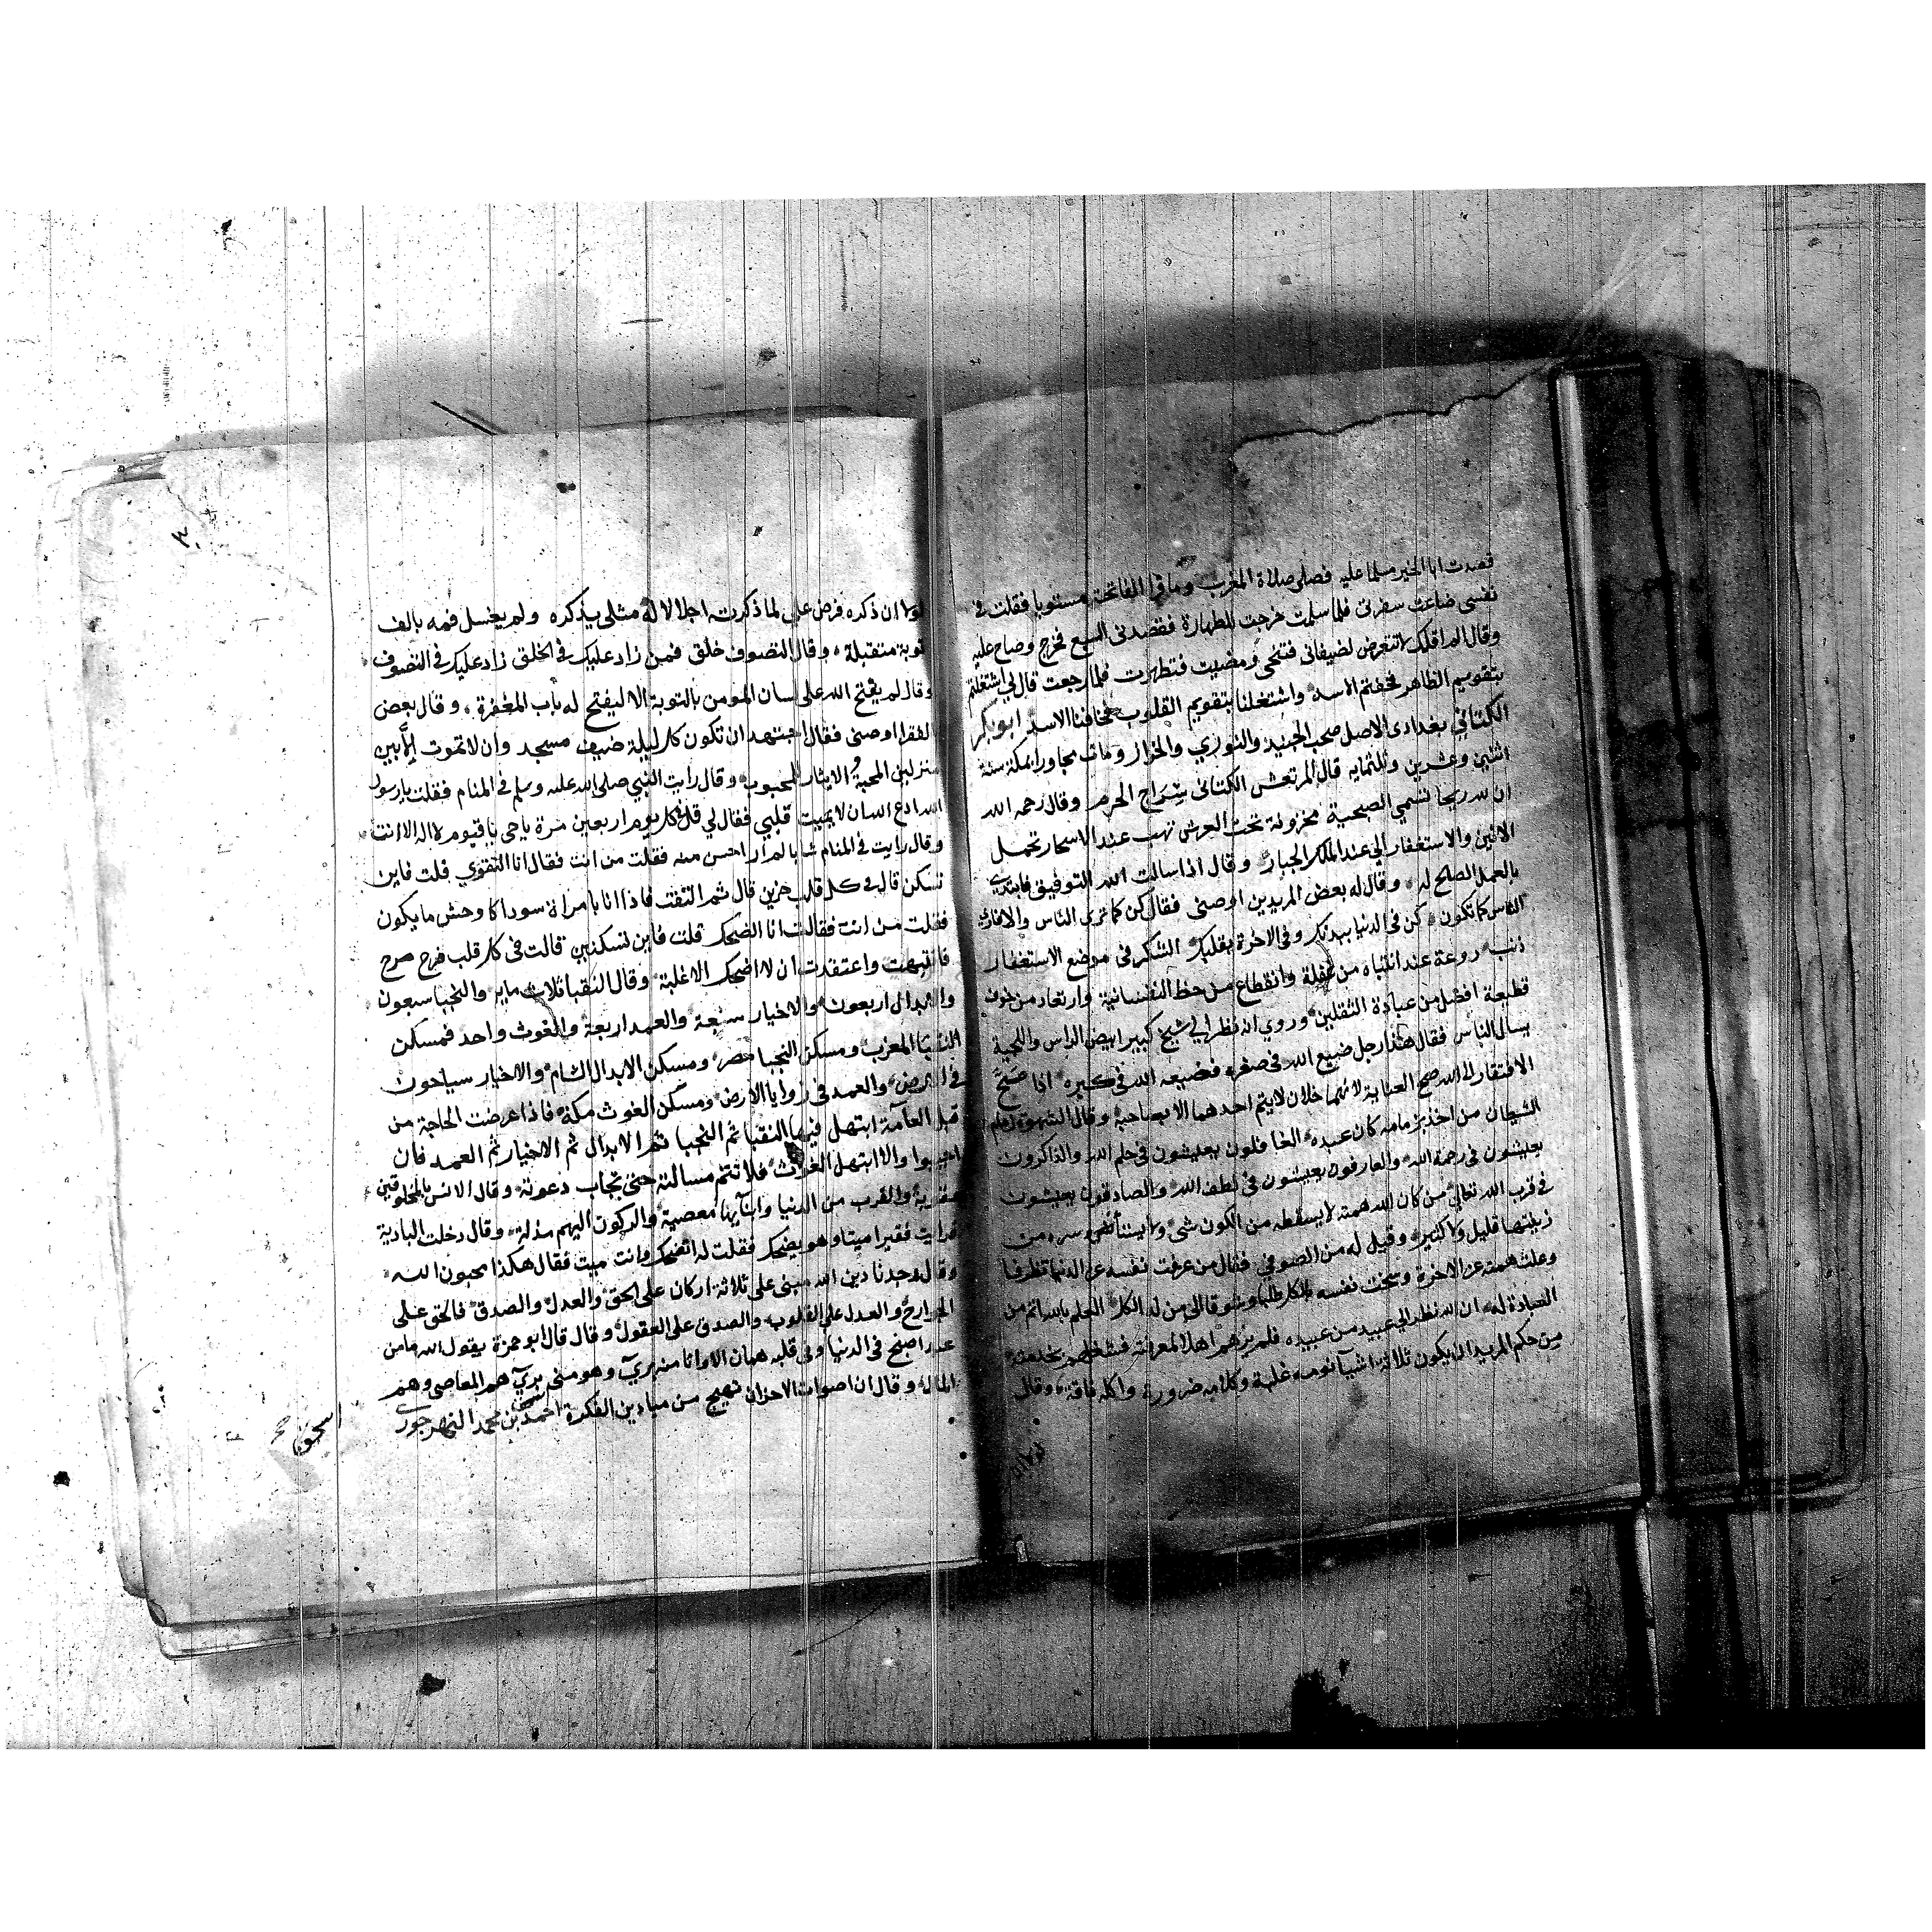 قصدت ابا الخير مسلما عليه فصلى صلاة المغرب وما قرا الفاتحة مستويا فقلت في
نفسي ضاعت سفرتي فلما سلمت خرجت للطهارة فقصدني السبع فخرج وصاح عليه
وقال الم اقل لك لا تتعرض لضيفاني فتنحى ومضيت فتطهرت فلما رجعت قال لي اشتغلتم
بتقويم الظاهر فخفتم الاسد واشتغلنا بتقويم القلوب فخافنا الاسد ابو بكر
الكتاني بغدادي الاصل صحب الجنيد والنوري والخراز ومات مجاورا بمكة سنة
اثنتين وعشرين وثلثمايه قال المرتعش الكتاني سراج الحرم وقال رحمه الله
ان لله ريحا تسمي الصبحية مخزونة تحت العرش تهب عند الاسحار تحمل
الانين والاستغفار الي عند الملك الجبار وقال اذا سالت الله التوفيق فابتدي
بالعمل الصالح له وقال له بعض المريدين اوصني فقال كن كما تري الناس والا فار
الناس كما تكون كن في الدنيا ببدنك وفي الاخرة بقلبك الشكر في موضع الاستغفار
ذنب روعة عند انتباه من غفلة وانقطاع من حظ النفسانية وارتعاد من خوف
قطيعة افضل من عبادة الثقلين وروي انه نظر الي شيخ كبير ابيض الراس واللحية
يسال الناس فقال هذا رجل ضيع الله في صغره فضيعه الله في كبره اذا صح
الافتقار الى الله صح العناية لانهما حالان لا يتم احدهما الا بصاحبه وقال الشهوة زمام
الشيطان من اخذ بزمامه كان عبده الغافلون يعيشون في حلم الله والذاكرون
يعيشون في رحمة الله والعارفون يعيشون في لطف الله والصادقون يعيشون
في قرب الله تعالي من كان الله همته لا يسقطه من الكون شي ولا يستأثر سره من
زينتها قليل ولا كثير وقيل له من الصوفي فقال من عزفت نفسه عن الدنيا تظرفا
وعلت همته عن الاخرة وسخت نفسه بالكل طلبا وشوقا الى من له الكل العلم بالله اتم من
العبادة له ان لله نظر الي عبيد من عبيده فلم يرهم اهلا لمعرفته فشغلهم بخدمته
من حكم المريد ان يكون ثلاثة اشيا نومه غلبة وكلامه ضرورة واكله فاقة وقال
لولا
لولا ان ذكره فرض علي لما ذكرته اجلالا له مثلي يذكره ولم يغسل فمه بالف
توبة متقبلة وقال التصوف خلق فمن زاد عليك في الخلق زاد عليك في التصوف
وقال لم يفتح الله على لسان المومن بالتوبة الا ليفتح له باب المغفرة وقال بعض
الفقرا اوصني فقال اجتهد ان تكون كل ليلة ضيف مسجد وان لا تموت الا بين
منزلين المحبة الايثار للمحبوب وقال رايت النبي صلى الله عليه وسلم في المنام فقلت يا رسول
الله ادع الله ان لا يميت قلبي فقال لي قل كل يوم اربعين مرة يا حي يا قيوم لا اله الا انت
وقال رايت في المنام شابا لم ار احسن منه فقلت من انت فقال انا التقوي قلت فاين
تسكن قال في كل قلب حزين قال ثم التفت فاذا انا بامراة سودا كاوحش ما يكون
فقلت من انت فقالت انا الضحك قلت فاين تسكنين قالت في كل قلب فرح مرح
فانتبهت واعتقدت ان لا اضحك الا غلبة وقال النقبا ثلاث مايه والنجبا سبعون
والابدال اربعون والاخيار سبعة والعمد اربعة والغوث واحد فمسكن
النقبا المغرب ومسكن النجبا مصر ومسكن الابدال الشام والاخيار سياحون
في الارض والعمد في زوايا الارض ومسكن الغوث مكة فاذا عرضت الحاجة من
قبل العامة ابتهل فيها النقبا ثم النجبا ثم الابدال ثم الاخيار ثم العمد فان
اجيبوا والا ابتهل الغوث فلا تتم مسالته حتى تجاب دعوته وقال الانس بالمخلوقين
عقوبة والقرب من الدنيا وابنايها معصية والركون اليهم مذلة وقال دخلت البادية
فرايت فقيرا ميتا وهو يضحك فقلت له اتضحك وانت ميت فقال هكذا محبون الله
وقال وجدنا دين الله مبنى على ثلاثة اركان على الحق والعدل والصدق فالحق على
الجوارح والعدل علي القلوب والصدق على العقول وقال قال ابو حمزة يقول الله ما من
عبد اصبح في الدنيا وفي قلبه همان الا وانا منه بري وهو مني بري هم المعاصي وهم
المال وقال ان اصوات الاحزان تهيج من ميادين الفكرة احمد بن محمد النهرجوري
اسحق